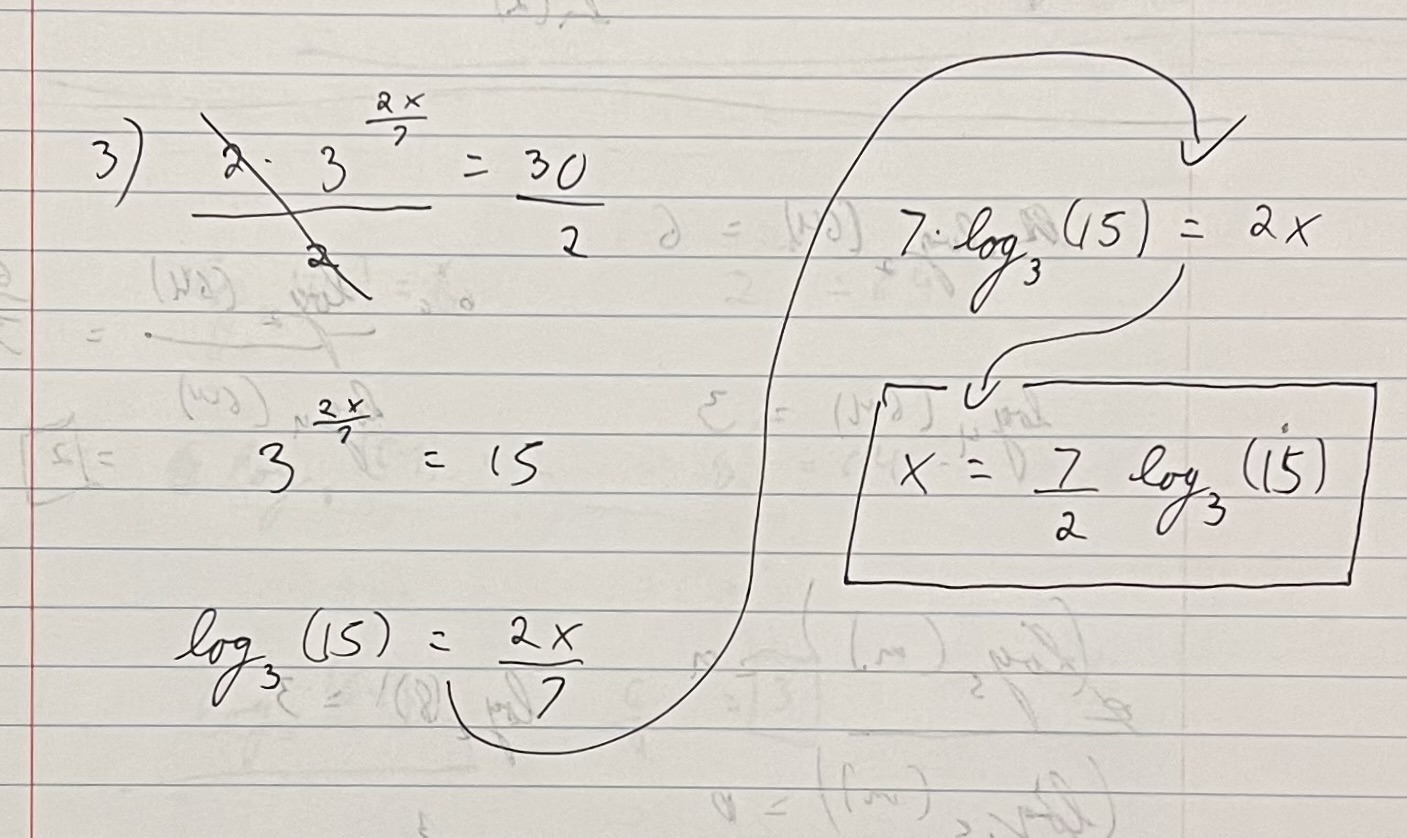 3) 2 · 3^(2x/7) / 2 = 30/2
3^(2x/7) = 15
log₃ (15) = 2x/7
7 · log₃ (15) = 2x
x = 7/2 log₃ (15)